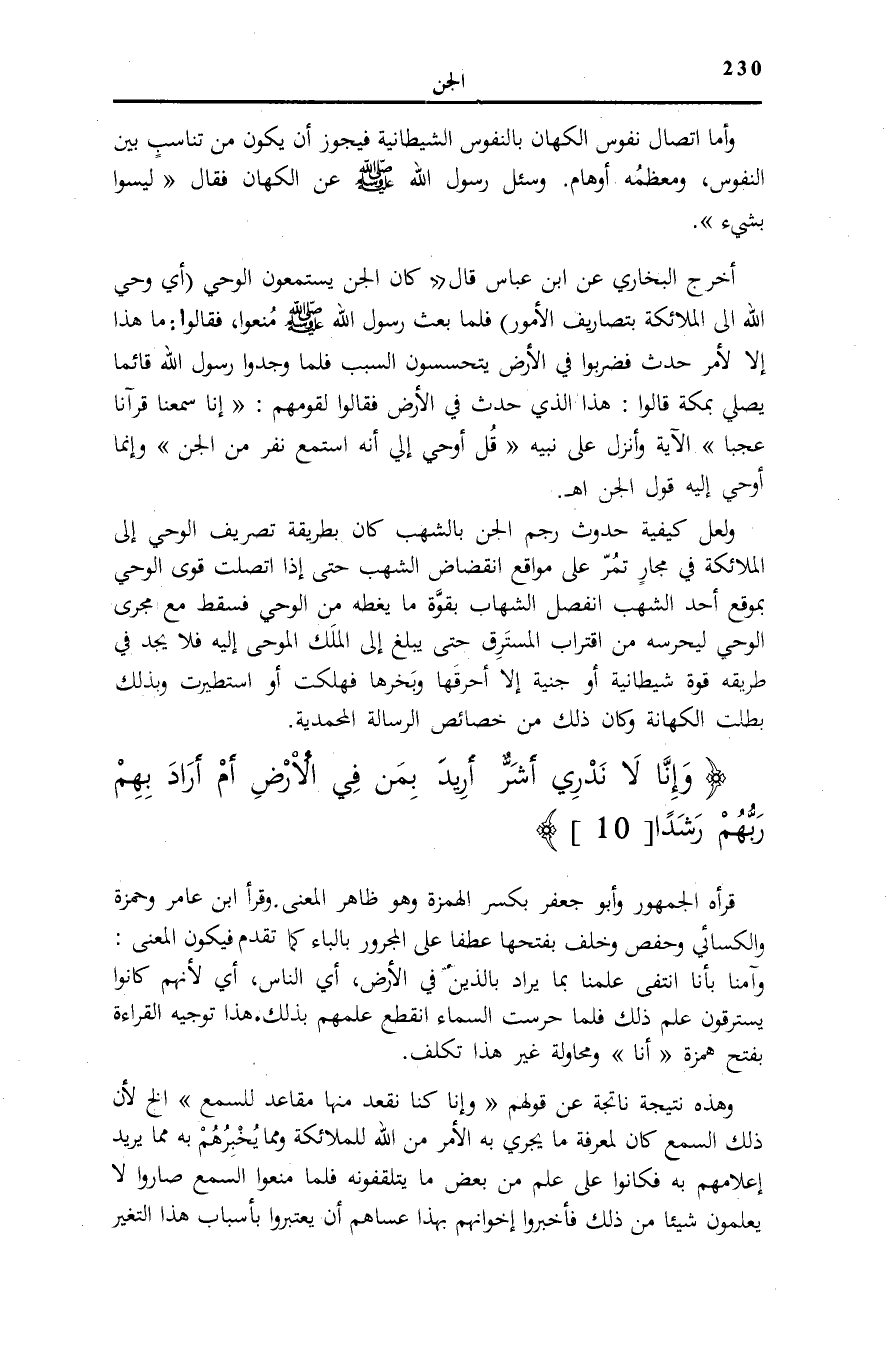 230
الجن
وأما اتصال نفوس الكهان بالنفوس الشيطانية فيجوز أن يكون من تناسبٍ بين
النفوس، ومعظمُه أوهام. وسئل رسول الله ﷺ عن الكهان فقال « ليسوا
بشيء ».
أخرج البخاري عن ابن عباس قال« كان الجن يستمعون الوحي (أي وحي
الله الى الملائكة بتصاريف الأمور) فلما بعث رسول الله ﷺ مُنعوا، فقالوا: ما هذا
إلا لأمر حدث فضربوا في الأرض يتحسسون السبب فلما وجدوا رسول الله قائما
يصلي بمكة قالوا : هذا الذي حدث في الأرض فقالوا لقومهم : « إنا سمعنا قرآنا
عجبا » الآية وأنزل على نبيه « قُل أوحي إلي أنه استمع نفر من الجن » وإنما
أوحي إليه قول الجن اهـ.
ولعل كيفية حدوث رجم الجن بالشهب كان بطريقة تصريف الوحي إلى
الملائكة في مجارٍ تمُرّ على مواقع انقضاض الشهب حتى إذا اتصلت قوى الوحي
بموقع أحد الشهب انفصل الشهاب بقوَّة ما يغطه من الوحي فسقط مع مجرى
الوحي ليحرسه من اقتراب المسترِق حتى يبلغ إلى الملَك الموحى إليه فلا يجد في
طريقه قوة شيطانية أو جنية إلا أحرقَها وبَخرها فهلكت أو استطيرت وبذلك
بطلت الكهانة وكان ذلك من خصائص الرسالة المحمدية.
﴿ وَإِنَّا لَا نَدْرِي أَشَرٌّ أُرِيدَ بِمَن فِي الْأَرْضِ أَمْ أَرَادَ بِهِمْ
رَبُّهُمْ رَشَدًا[ 10 ] ﴾
قرأه الجمهور وأبو جعفر بكسر الهمزة وهو ظاهر المعنى. وقرأ ابن عامر وحمزة
والكسائي وحفص وخلف بفتحها عطفا على المجرور بالباء كما تقدم فيكون المعنى :
وآمنا بأنا انتفى علمنا بما يراد بالذين في الأرض، أي الناس، أي لأنهم كانوا
يسترقون علم ذلك فلما حرست السماء انقطع علمهم بذلك. هذا توجيه القراءة
بفتح همزة « أنا » ومحاولة غير هذا تكلف.
وهذه نتيجة ناتجة عن قولهم « وإنا كنا نقعد منها مقاعد للسمع » الخ لأن
ذلك السمع كان لمعرفة ما يجري به الأمر من الله للملائكة ومما يُخْبِرُهُمْ به مما يريد
إعلامهم به فكانوا على علم من بعض ما يتلقفونه فلما منعوا السمع صاروا لا
يعلمون شيئا من ذلك فأخبروا إخوانهم بهذا عساهم أن يعتبروا بأسباب هذا التغير